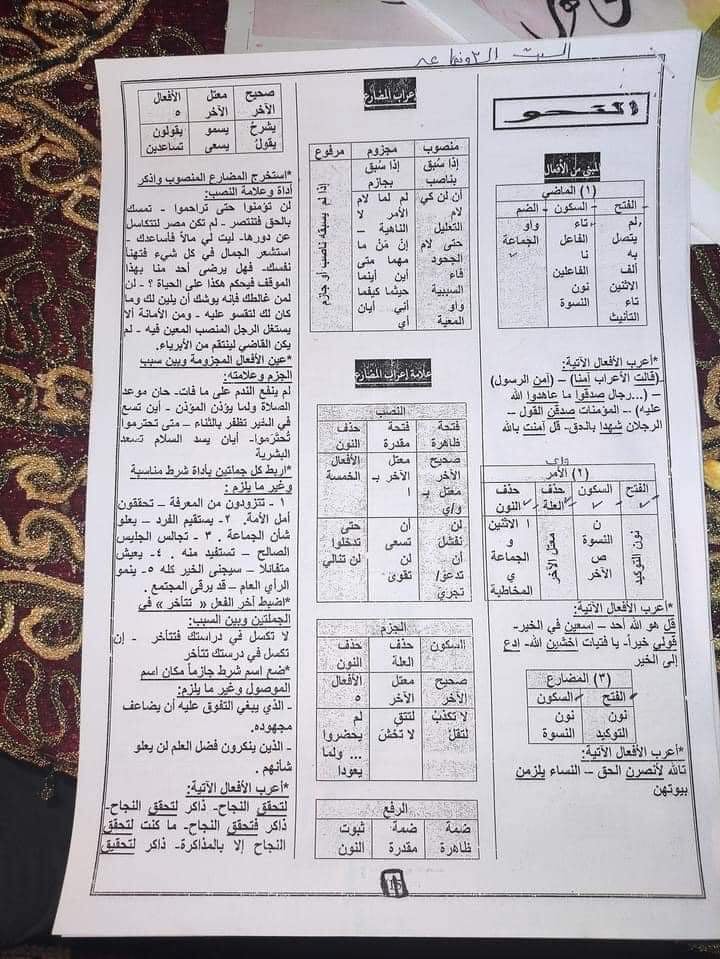 السبت
النحو
المبني من الأفعال
(١) الماضي
الفتح السكون الضم
لم تاء واو
يتصل الفاعل الجماعة
به نا
ألف الفاعلين
الاثنين نون
تاء النسوة
التأنيث
*أعرب الأفعال الآتية:
(قالت الأعراب آمنا) – (آمن الرسول)
– (...رجال صدقوا ما عاهدوا الله
عليه) – المؤمنات صدقن القول –
الرجلان شهدا بالحق- قل آمنت بالله
(٢) الأمر
الفتح السكون حذف حذف
العلة النون
نون التوكيد
ن
النسوة
ص
الآخر
معتل الآخر
ا الاثنين
و
الجماعة
ي
المخاطبة
*أعرب الأفعال الآتية:
قل هو الله أحد – اسعين في الخير-
قولي خيراً- يا فتيات اخشين الله- ادع
إلى الخير
(٣) المضارع
الفتح السكون
نون نون
التوكيد النسوة
*أعرب الأفعال الآتية:
تالله لأنصرن الحق – النساء يلزمن
بيوتهن
إعراب المضارع
منصوب مجزوم مرفوع
إذا سبق إذا سبق
بناصب بجازم
أن لن كي لم لما لام
لام الأمر لا
التعليل الناهية –
حتى لام إن من ما
الجحود مهما متى
فاء أين أينما
السببية حيثما كيفما
واو أني أيان
المعية أي
إذا لم يسبقه ناصب أو جازم
علامة إعراب المضارع
النصب
فتحة فتحة حذف
ظاهرة مقدرة النون
صحيح معتل الأفعال
الآخر الآخر بـ الخمسة
معتل بـ ا
و/ي
لن أن حتى
نفشل تسعى تدخلوا
أن لن لن تنالي
تدعو/ تقوى
تجري
الجزم
السكون حذف حذف
العلة النون
صحيح معتل الأفعال
الآخر الآخر ٥
لا تكذب لتتق لم
لتقل لا تخش يحضروا
... ولما
يعودا
الرفع
ضمة ضمة ثبوت
ظاهرة مقدرة النون
صحيح معتل الأفعال
الآخر الآخر ٥
يشرح يسمو يقولون
يقول يسعى تساعدين
*استخرج المضارع المنصوب واذكر
أداة وعلامة النصب:
لن تؤمنوا حتى تراحموا - تمسك
بالحق فتنتصر – لم تكن مصر لتتكاسل
عن دورها- ليت لي مالاً فأساعدك –
استشعر الجمال في كل شيء فتهنأ
نفسك- فهل يرضى أحد منا بهذا
الموقف فيحكم هكذا على الحياة ؟ - لن
لمن غالطك فإنه يوشك أن يلين لك وما
كان لك لتقسو عليه - ومن الأمانة ألا
يستغل الرجل المنصب المعين فيه – لم
يكن القاضي لينتقم من الأبرياء.
*عين الأفعال المجزومة وبين سبب
الجزم وعلامته:
لم ينفع الندم على ما فات- حان موعد
الصلاة ولما يؤذن المؤذن - أين تسع
في الخير تظفر بالثناء – متى تحترموا
تُحترموا- أيان يسد السلام تسعد
البشرية
*اربط كل جملتين بأداة شرط مناسبة
وغير ما يلزم:
١ - تتزودون من المعرفة – تحققون
أمل الأمة. ٢- يستقيم الفرد – يعلو
شأن الجماعة . ٣ - تجالس الجليس
الصالح – تستفيد منه . ٤ - يعيش
متفائلا – سيجنى الخير كله ٥- ينمو
الرأي العام – قد يرقى المجتمع .
*اضبط آخر الفعل « تتأخر » في
الجملتين وبين السبب:
لا تكسل في دراستك فتتأخر - إن
تكسل في درستك تتأخر
*ضع اسم شرط جازماً مكان اسم
الموصول وغير ما يلزم:
- الذي يبغي التفوق عليه أن يضاعف
مجهوده.
- الذين ينكرون فضل العلم لن يعلو
شأنهم .
*أعرب الأفعال الآتية:
لتحقق النجاح- ذاكر لتحقق النجاح-
ذاكر فتحقق النجاح- ما كنت لتحقق
النجاح إلا بالمذاكرة- ذاكر لتحقيق